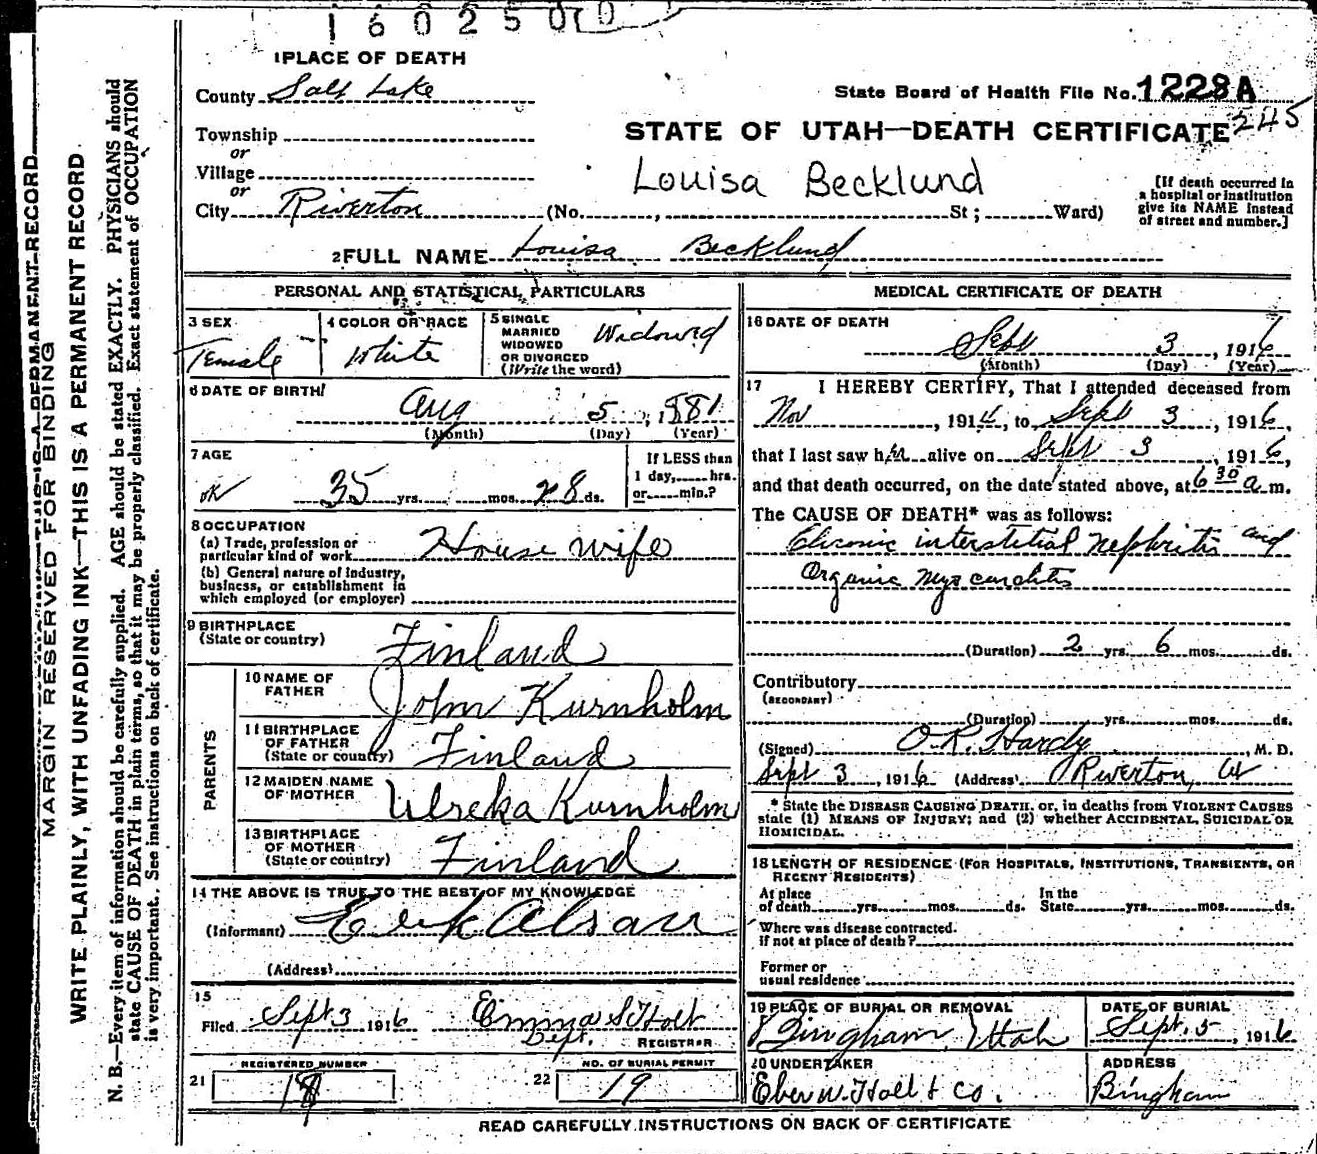 1602500
1 PLACE OF DEATH
County Salt Lake
State Board of Health File No. 1228A
245
Township
or
Village
or
City Riverton (No. , St; Ward)
STATE OF UTAH—DEATH CERTIFICATE
Louisa Becklund
[If death occurred in
a hospital or institution
give its NAME instead
of street and number.]
2 FULL NAME Louisa Becklund
PERSONAL AND STATISTICAL PARTICULARS
3 SEX
Female
4 COLOR OR RACE
White
5 SINGLE
MARRIED
WIDOWED
OR DIVORCED
(Write the word)
Widowed
6 DATE OF BIRTH
Aug 5, 1881
(Month) (Day) (Year)
7 AGE
ok 35 yrs. mos. 28 ds.
If LESS than
1 day, hrs.
or min.?
8 OCCUPATION
(a) Trade, profession or
particular kind of work House wife
(b) General nature of industry,
business, or establishment in
which employed (or employer)
9 BIRTHPLACE
(State or country) Finland
PARENTS
10 NAME OF
FATHER John Kurnholm
11 BIRTHPLACE
OF FATHER
(State or country) Finland
12 MAIDEN NAME
OF MOTHER Ulreka Kurnholm
13 BIRTHPLACE
OF MOTHER
(State or country) Finland
14 THE ABOVE IS TRUE TO THE BEST OF MY KNOWLEDGE
(Informant)
(Address)
15
Filed Sept 3 1916 Emma S Holt
Dept. REGISTRAR
REGISTERED NUMBER
21 18
NO. OF BURIAL PERMIT
22 19
MEDICAL CERTIFICATE OF DEATH
16 DATE OF DEATH
Sept 3, 1916
(Month) (Day) (Year)
17 I HEREBY CERTIFY, That I attended deceased from
Nov , 1914, to Sept 3, 1916,
that I last saw her alive on Sept 3, 1916,
and that death occurred, on the date stated above, at 6 30 a m.
The CAUSE OF DEATH* was as follows:
Chronic interstitial nephritis and
Organic myocarditis
(Duration) 2 yrs. 6 mos. ds.
Contributory
(SECONDARY)
(Duration) yrs. mos. ds.
(Signed) O.R. Hardy, M. D.
Sept 3, 1916 (Address) Riverton, Ut
* State the DISEASE CAUSING DEATH, or, in deaths from VIOLENT CAUSES
state (1) MEANS OF INJURY; and (2) whether ACCIDENTAL, SUICIDAL OR
HOMICIDAL.
18 LENGTH OF RESIDENCE (FOR HOSPITALS, INSTITUTIONS, TRANSIENTS, OR
RECENT RESIDENTS)
At place
of death yrs. mos. ds.
In the
State yrs. mos. ds.
Where was disease contracted.
if not at place of death?
Former or
usual residence
19 PLACE OF BURIAL OR REMOVAL
Bingham, Utah
DATE OF BURIAL
Sept. 5, 1916
20 UNDERTAKER
Eber W. Hall & Co.
ADDRESS
Bingham
READ CAREFULLY INSTRUCTIONS ON BACK OF CERTIFICATE
MARGIN RESERVED FOR BINDING
WRITE PLAINLY, WITH UNFADING INK—THIS IS A PERMANENT RECORD
N. B.—Every item of information should be carefully supplied. AGE should be stated EXACTLY. PHYSICIANS should
state CAUSE OF DEATH in plain terms, so that it may be properly classified. Exact statement of OCCUPATION
is very important. See instructions on back of certificate.